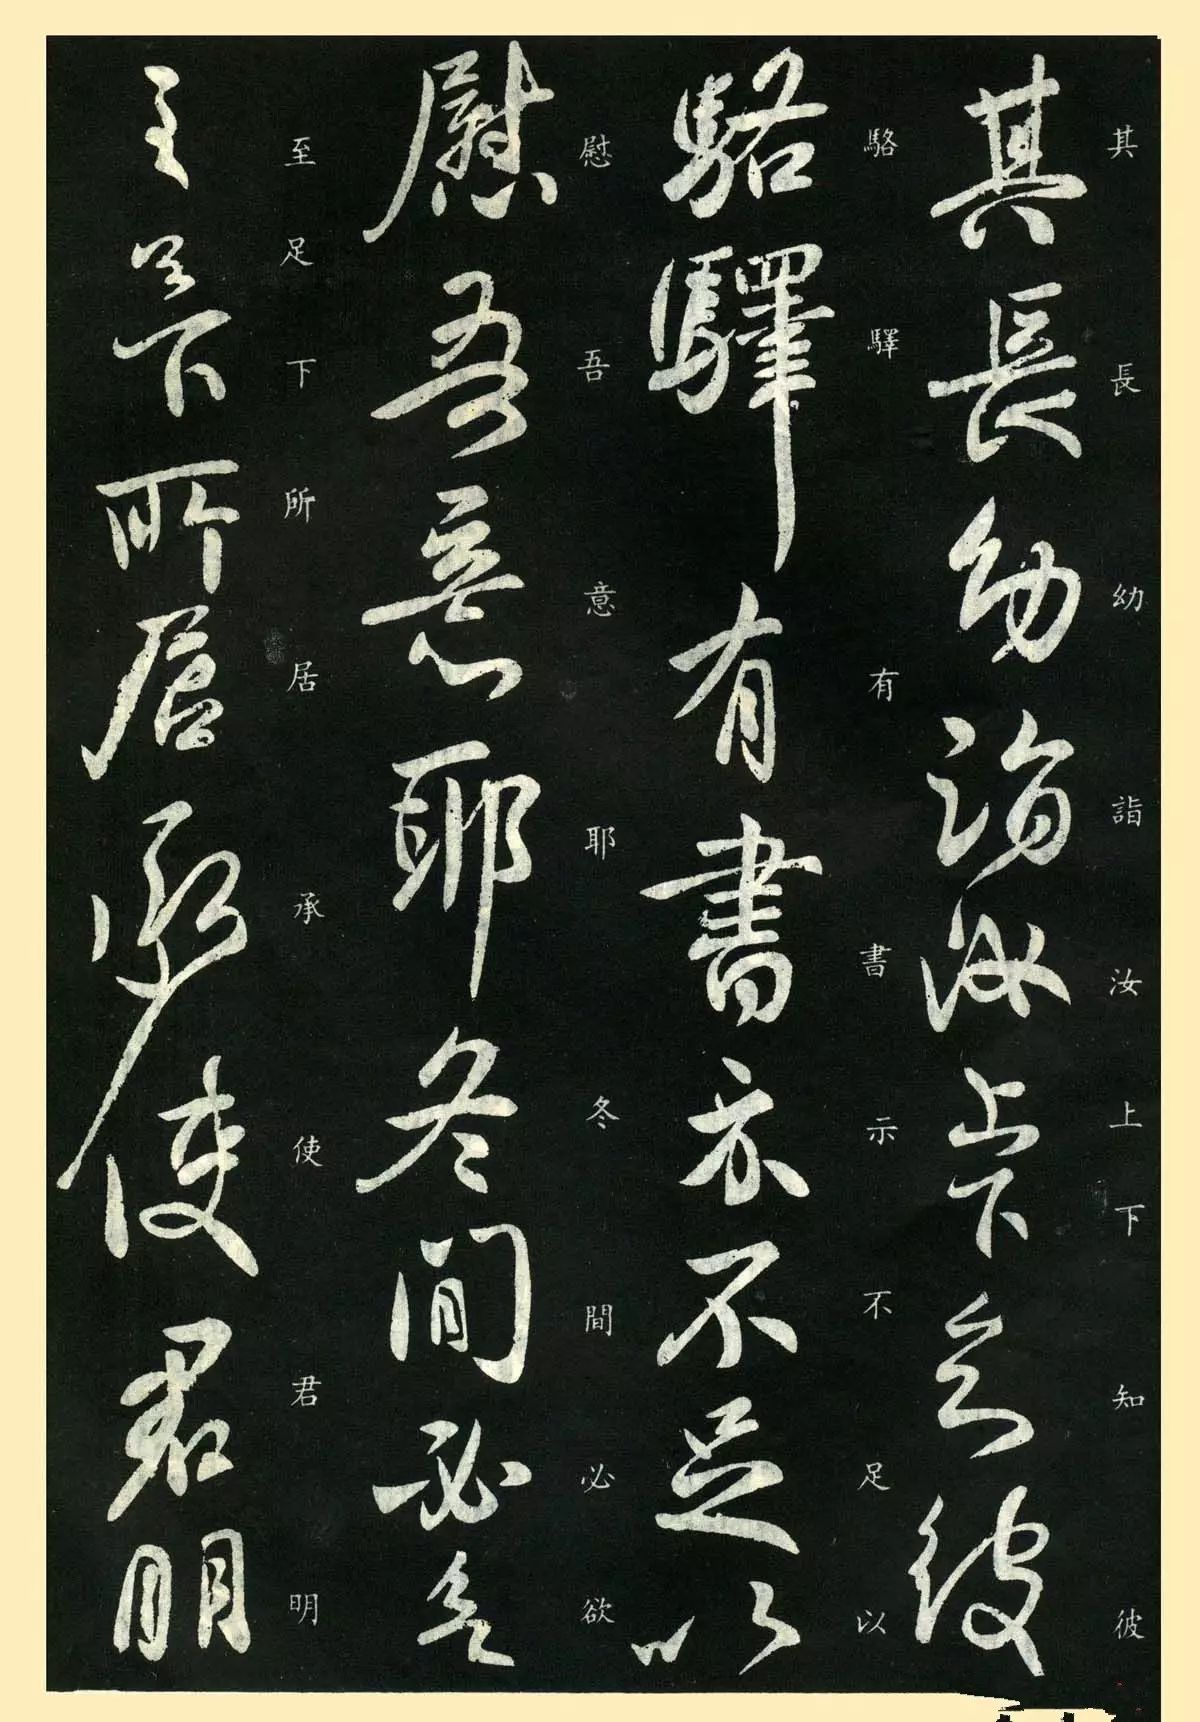 其長幼詣汝上下知彼
其長幼詣汝上下知彼
駱驛有書示不足以
駱驛有書示不足以
慰吾意耶冬間必欲
慰吾意耶冬間必
至足下所居承使君明
至足下所居承使君明